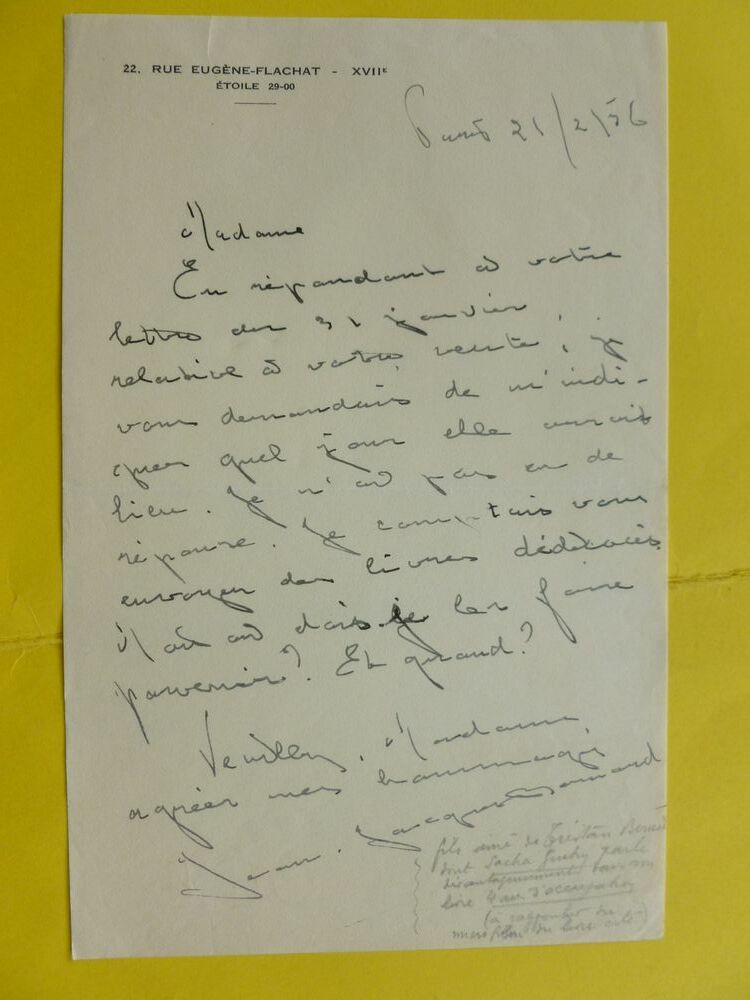 22, RUE EUGÈNE-FLACHAT - XVIIᴱ
ÉTOILE 29-00
Paris 21/2/56
Madame
En répondant à votre
lettre du 31 janvier
relative à votre vente, je
vous demandais de m'indi-
quer quel jour elle aurait
lieu. Je n'ai pas eu de
réponse. Je comptais vous
envoyer des livres dédicacés
Mais où dois-je les faire
parvenir? Et quand?
Veuillez, Madame
agréer mes hommages
Jean-Jacques Bernard
fils aîné de Tristan Bernard
dont Sacha Guitry parle
dans son
livre 4 ans d'occupation